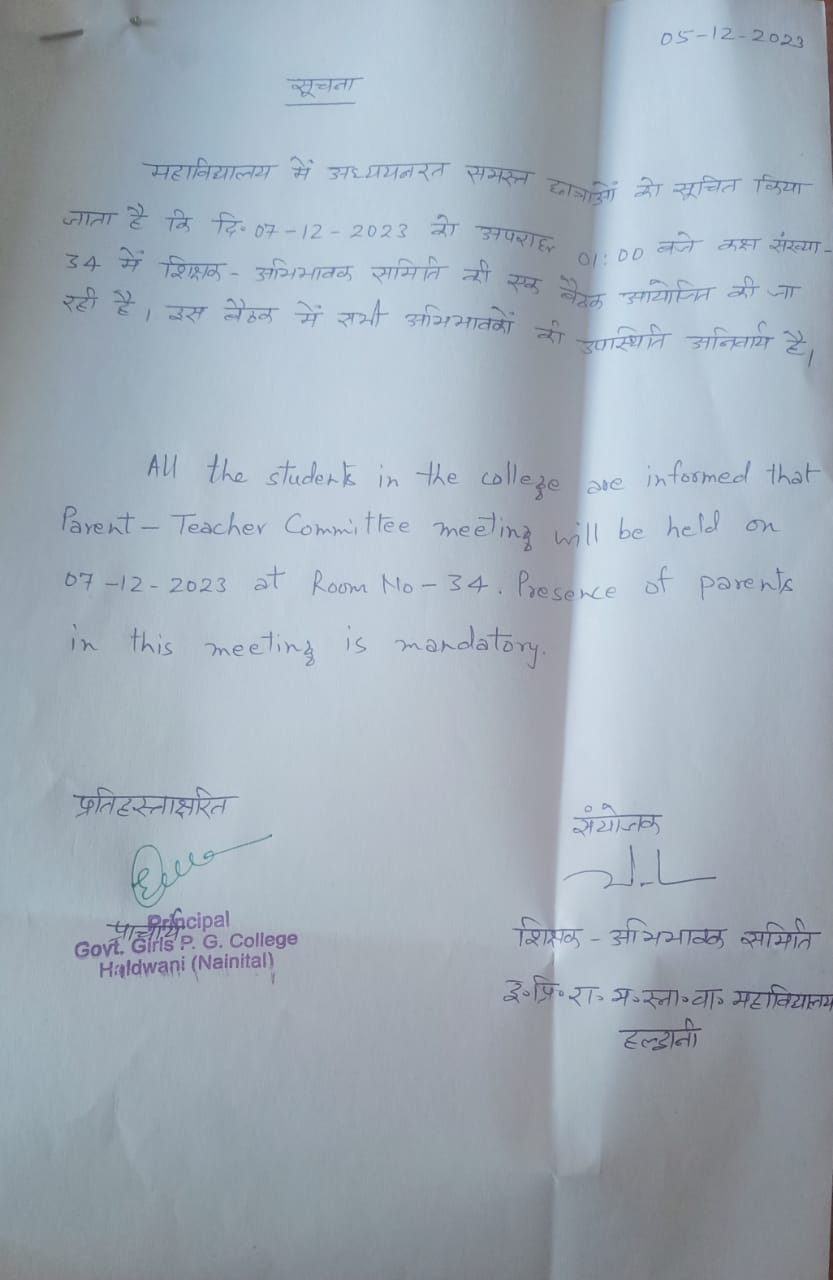 05-12-2023
सूचना
महाविद्यालय में अध्ययनरत समस्त छात्राओं को सूचित किया
जाता है कि दि॰ 07-12-2023 को अपराह्न 01:00 बजे कक्ष संख्या-
34 में शिक्षक - अभिभावक समिति की एक बैठक आयोजित की जा
रही है। इस बैठक में सभी अभिभावकों की उपस्थिति अनिवार्य है।
All the students in the college are informed that
Parent - Teacher Committee meeting will be held on
07-12-2023 at Room No - 34. Presence of parents
in this meeting is mandatory.
प्रतिहस्ताक्षरित
प्राचार्य
Principal
Govt. Girls P. G. College
Haldwani (Nainital)
संयोजक
शिक्षक - अभिभावक समिति
इ॰प्रि॰रा॰म॰स्ना॰वा॰ महाविद्यालय
हल्द्वानी